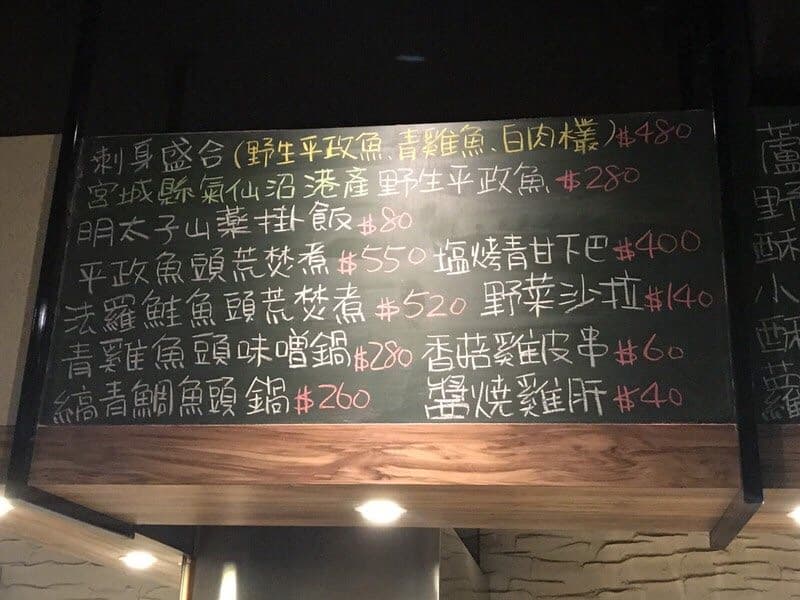 刺身盛合(野生平政魚、青雞魚、白肉欉)$480
宮城縣氣仙沼港產野生平政魚$280
明太子山薬掛飯$80
平政魚頭荒焚煮$550 塩烤青甘下巴$400
法羅鮭魚頭荒焚煮$520 野菜沙拉$140
青雞魚頭味噌鍋$280 香菇雞皮串$60
縞青鯛魚頭鍋$260 醬燒雞肝$40
蘆
野
酥
小
酥
蘿